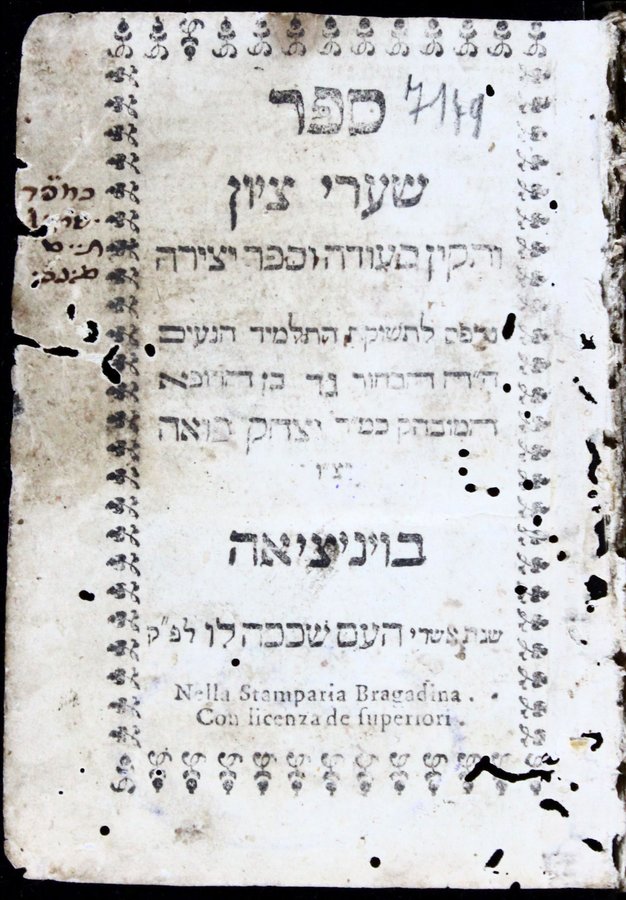 ספר 7149
שערי ציון
ותקין סעודה וספר יצירה
נדפס לתשוקת התלמיד הנעים
הבחור גד בן הרופא
המובהק כמ"ר יצחק פואה
יצ"ו
בויניציאה
שנת אשרי העם שככה לו לפ"ק
Nella Stamparia Bragadina.
Con licenza de superiori.